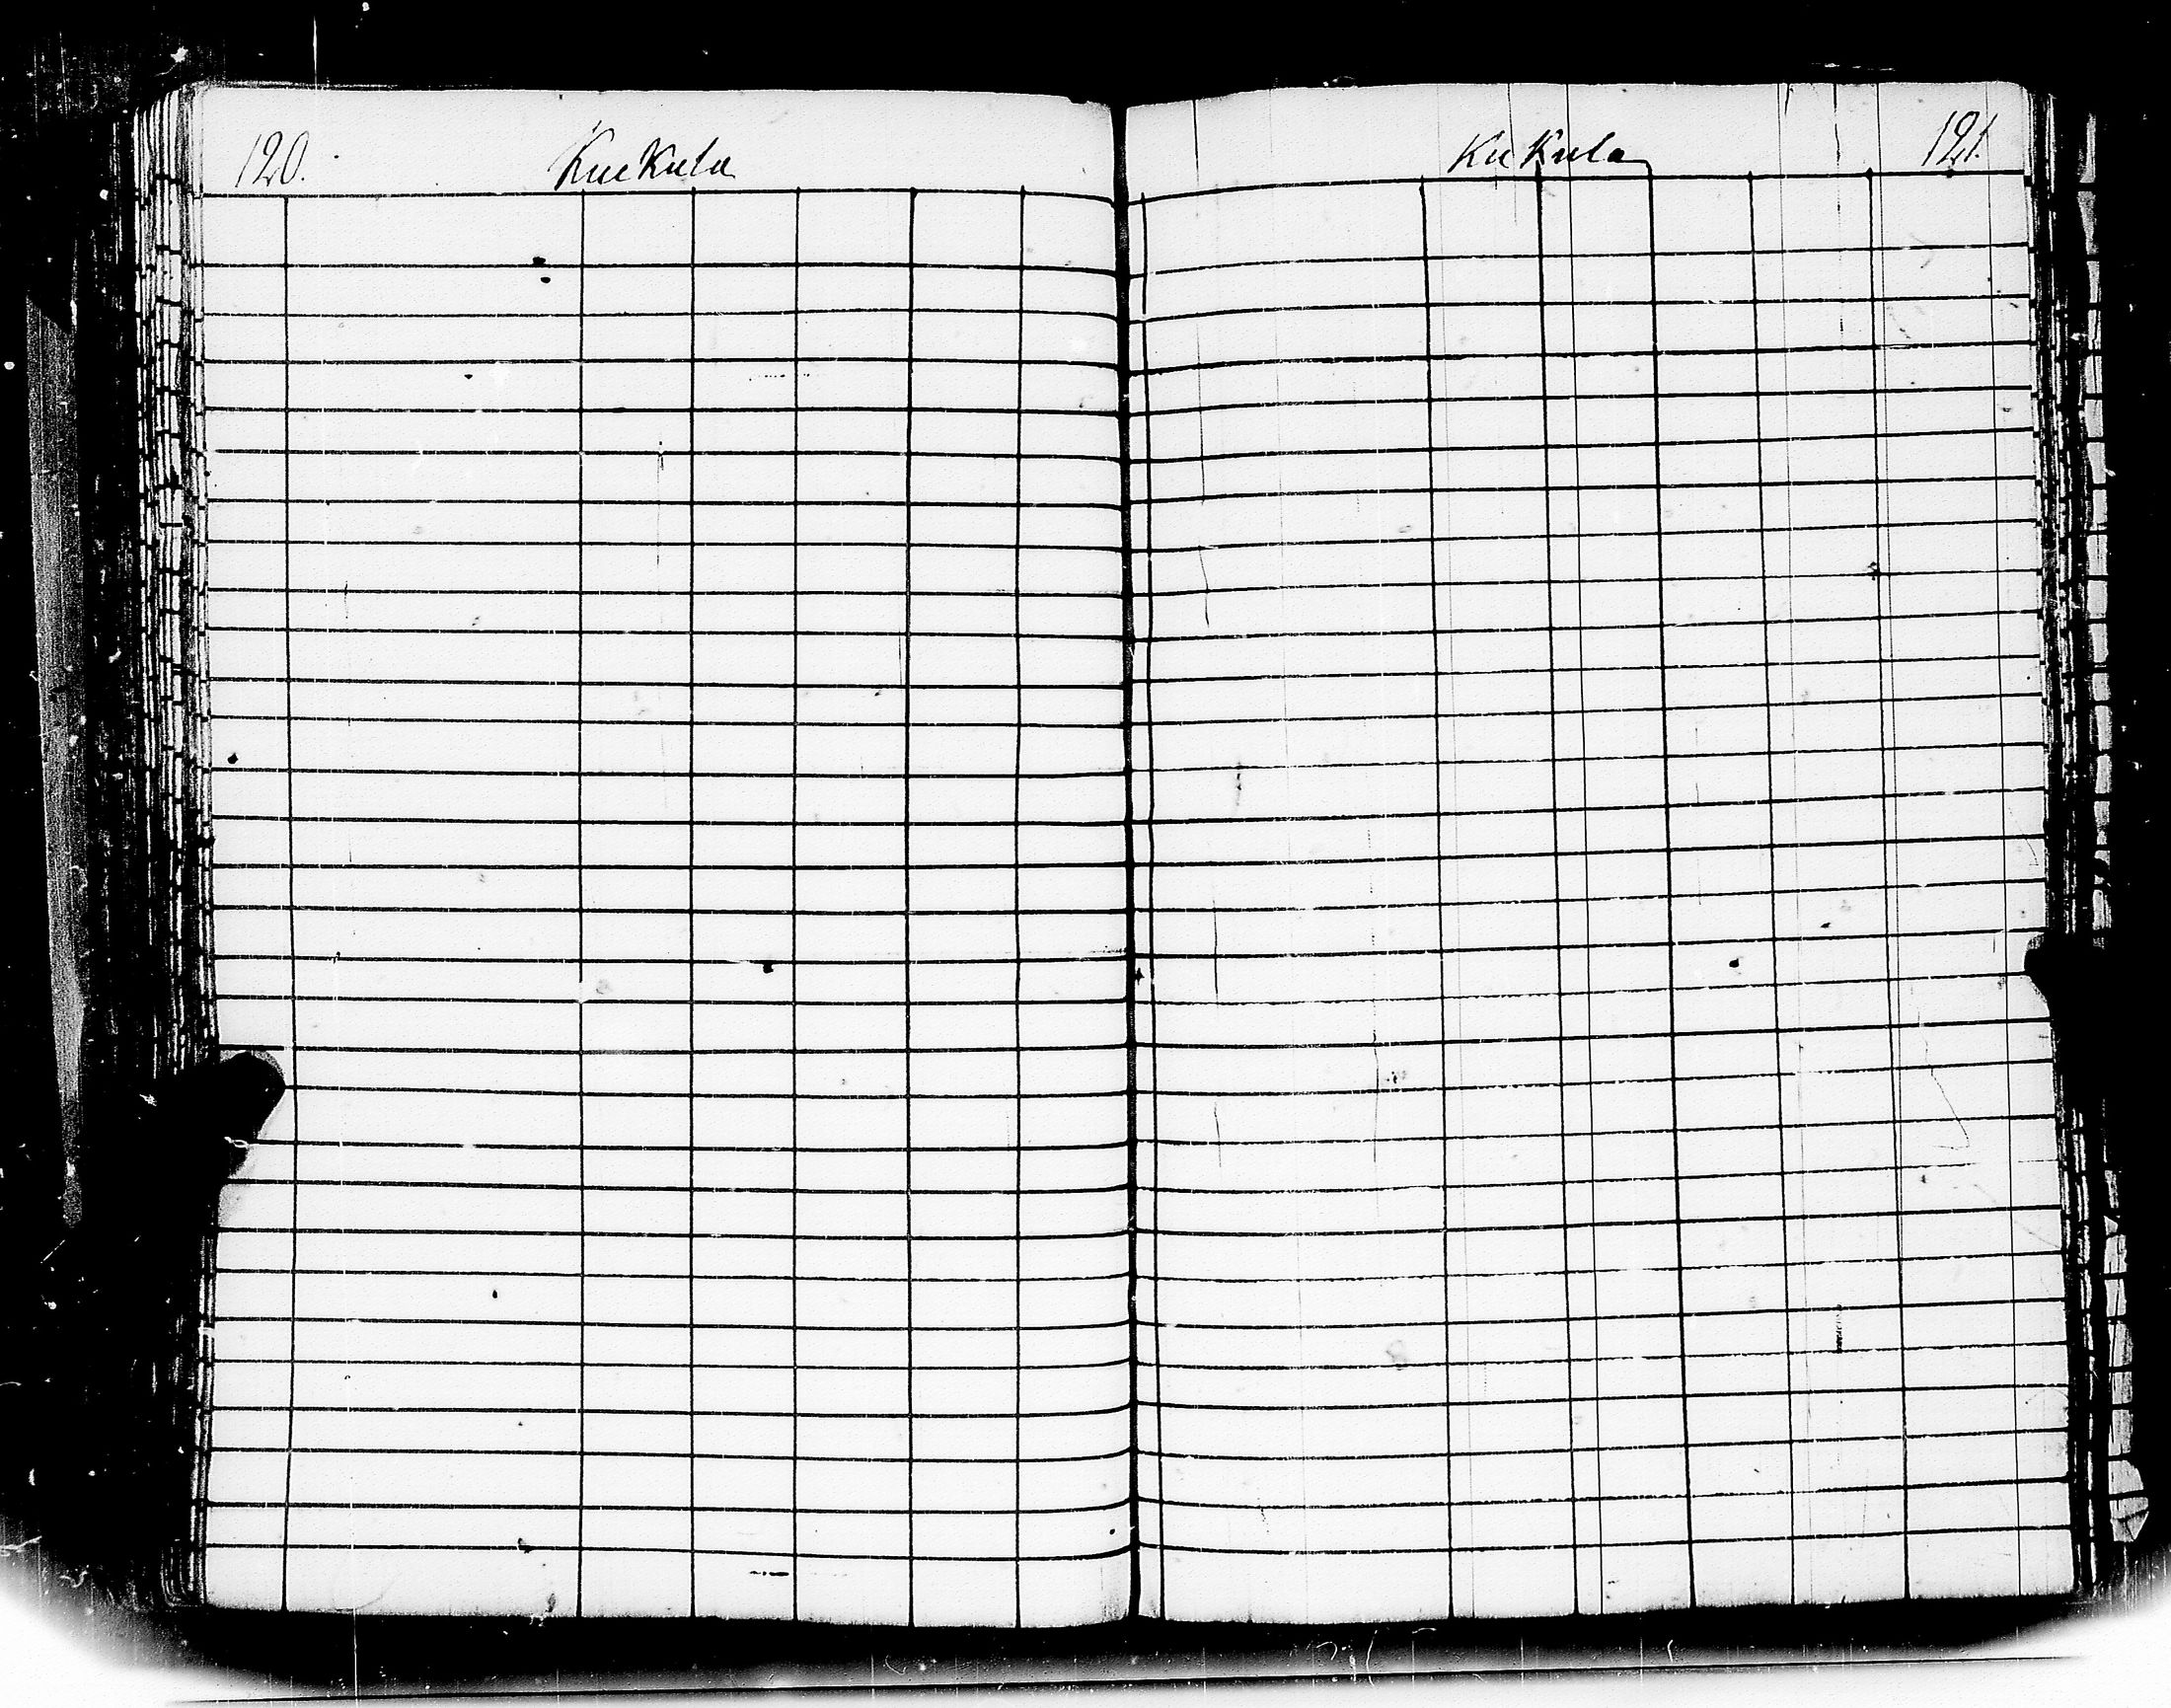 120. Kuckula
Kukula 121.